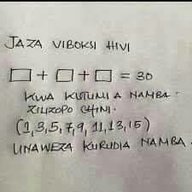 JAZA VIBOKSI HIVI
□ + □ + □ = 30
KWA KUTUMIA NAMBA
ZILIZOPO CHINI.
(1,3,5,7,9,11,13,15)
UNAWEZA KURUDIA NAMBA.